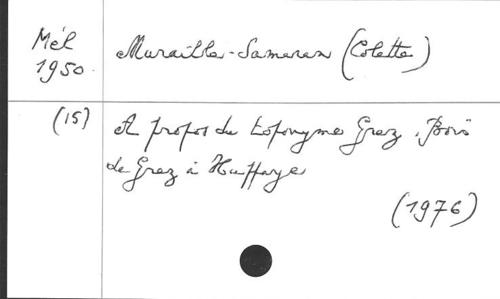 Mél
1950
Muraille-Samaran (Colette)
(15)
A propos du toponyme Graz. Bois
de Graz à Huffaye
(1976)